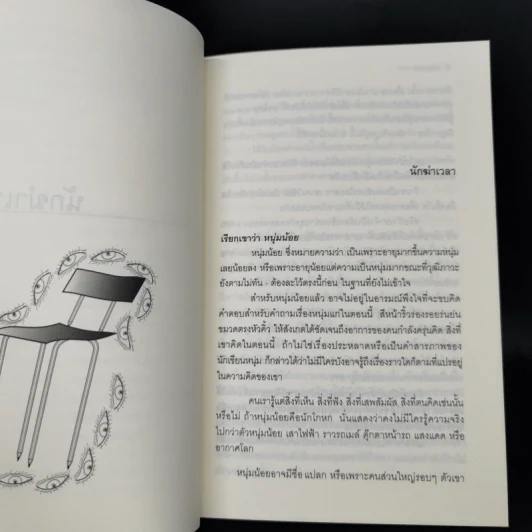 นักฆ่าเวลา
เรียกเขาว่า หนุ่มน้อย
หนุ่มน้อย ซึ่งหมายความว่า เป็นเพราะอายุมากขึ้นความหนุ่ม
เลยน้อยลง หรือเพราะอายุน้อยแต่ความเป็นหนุ่มมากขณะที่วุฒิภาวะ
ยังตามไม่ทัน - ต้องละไว้ตรงนี้ก่อน ในฐานที่ยังไม่เข้าใจ
สำหรับหนุ่มน้อยแล้ว อาจไม่อยู่ในอารมณ์พึงใจที่จะขบคิด
คำตอบสำหรับคำถามเรื่องหนุ่มแก่ในตอนนี้ สีหน้าริ้วร่องรอยร่นย่น
ขมวดตรงหัวคิ้ว ให้สังเกตได้ชัดเจนถึงอาการของคนกำลังครุ่นคิด สิ่งที่
เขาคิดในตอนนี้ ถ้าไม่ใช่เรื่องประหลาดหรือเป็นคำสารภาพของ
นักเขียนหนุ่ม ก็กล่าวได้ว่าไม่มีใครบังอาจรู้ถึงเรื่องราวใดก็ตามที่แปรอยู่
ในความคิดของเขา
คนเรารู้แต่สิ่งที่เห็น สิ่งที่ฟัง สิ่งที่เสพสัมผัส สิ่งที่ตนคิดเช่นนั้น
หรือไม่ ถ้าหนุ่มน้อยคือนักโกหก นั่นแสดงว่าคงไม่มีใครรู้ความจริง
ไปกว่าตัวหนุ่มน้อย เสาไฟฟ้า ราวรถเมล์ ตุ๊กตาหน้ารถ แสงแดด หรือ
อากาศโลก
หนุ่มน้อยอาจมีชื่อแปลก หรือเพราะคนส่วนใหญ่รอบๆ ตัวเขา